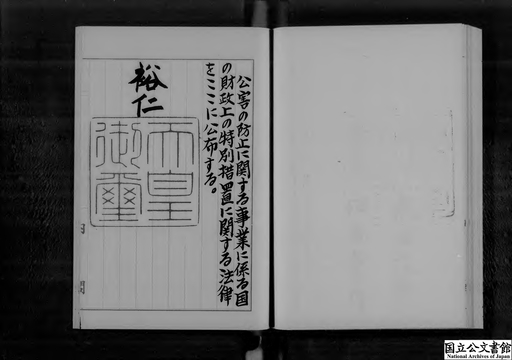 公害の防止に関する事業に係る国
の財政上の特別措置に関する法律
をここに公布する。
裕仁
天皇
御璽
国立公文書館
National Archives of Japan